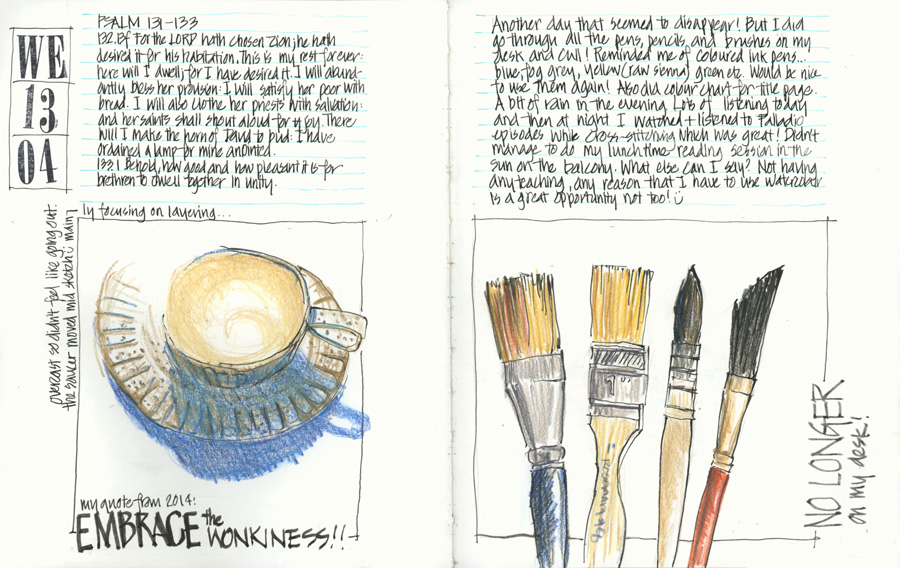 WE
13
04
PSALM 131-133
132.13f For the LORD hath chosen Zion; he hath
desired it for his habitation. This is my rest forever:
here will I dwell; for I have desired it. I will abund-
antly bless her provision: I will satisfy her poor with
bread. I will also clothe her priests with salvation:
and her saints shall shout aloud for joy. There
will I make the horn of David to bud: I have
ordained a lamp for mine anointed.
133.1 Behold, how good and how pleasant it is for
brethren to dwell together in unity.
overcast so didn't feel like going out.
the saucer moved mid sketch :) main
ly focusing on layering...
my quote from 2014:
EMBRACE the WONKINESS!!
Another day that seemed to disappear! But I did
go through all the pens, pencils and brushes on my
desk and cull! Reminded me of coloured ink pens...
blue, fog grey, yellow (raw sienna) green etc. Would be nice
to use them again! Also did colour chart for title page.
A bit of rain in the evening. Lots of listening today
and then at night I watched + listened to Palladio
episodes while cross-stitching which was great! Didn't
manage to do my lunchtime reading session in the
sun on the balcony. What else can I say? Not having
any teaching, any reason that I have to use watercolour
is a great opportunity not too! :)
1"
NO LONGER
on my desk!